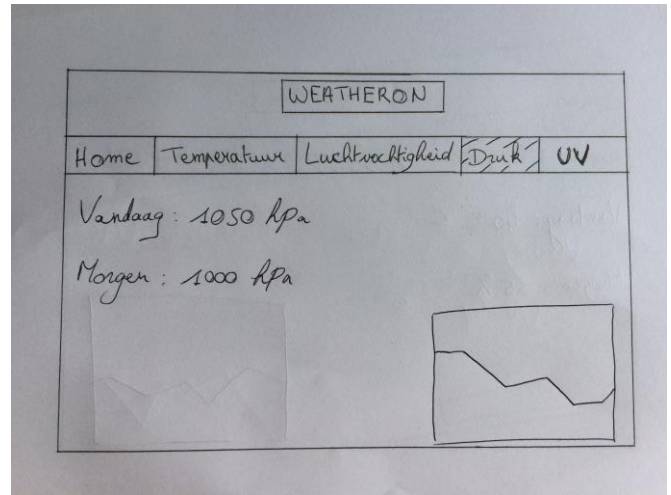 WEATHERON
Home Temperatuur Luchtvochtigheid Druk UV
Vandaag : 1050 hPa
Morgen : 1000 hPa